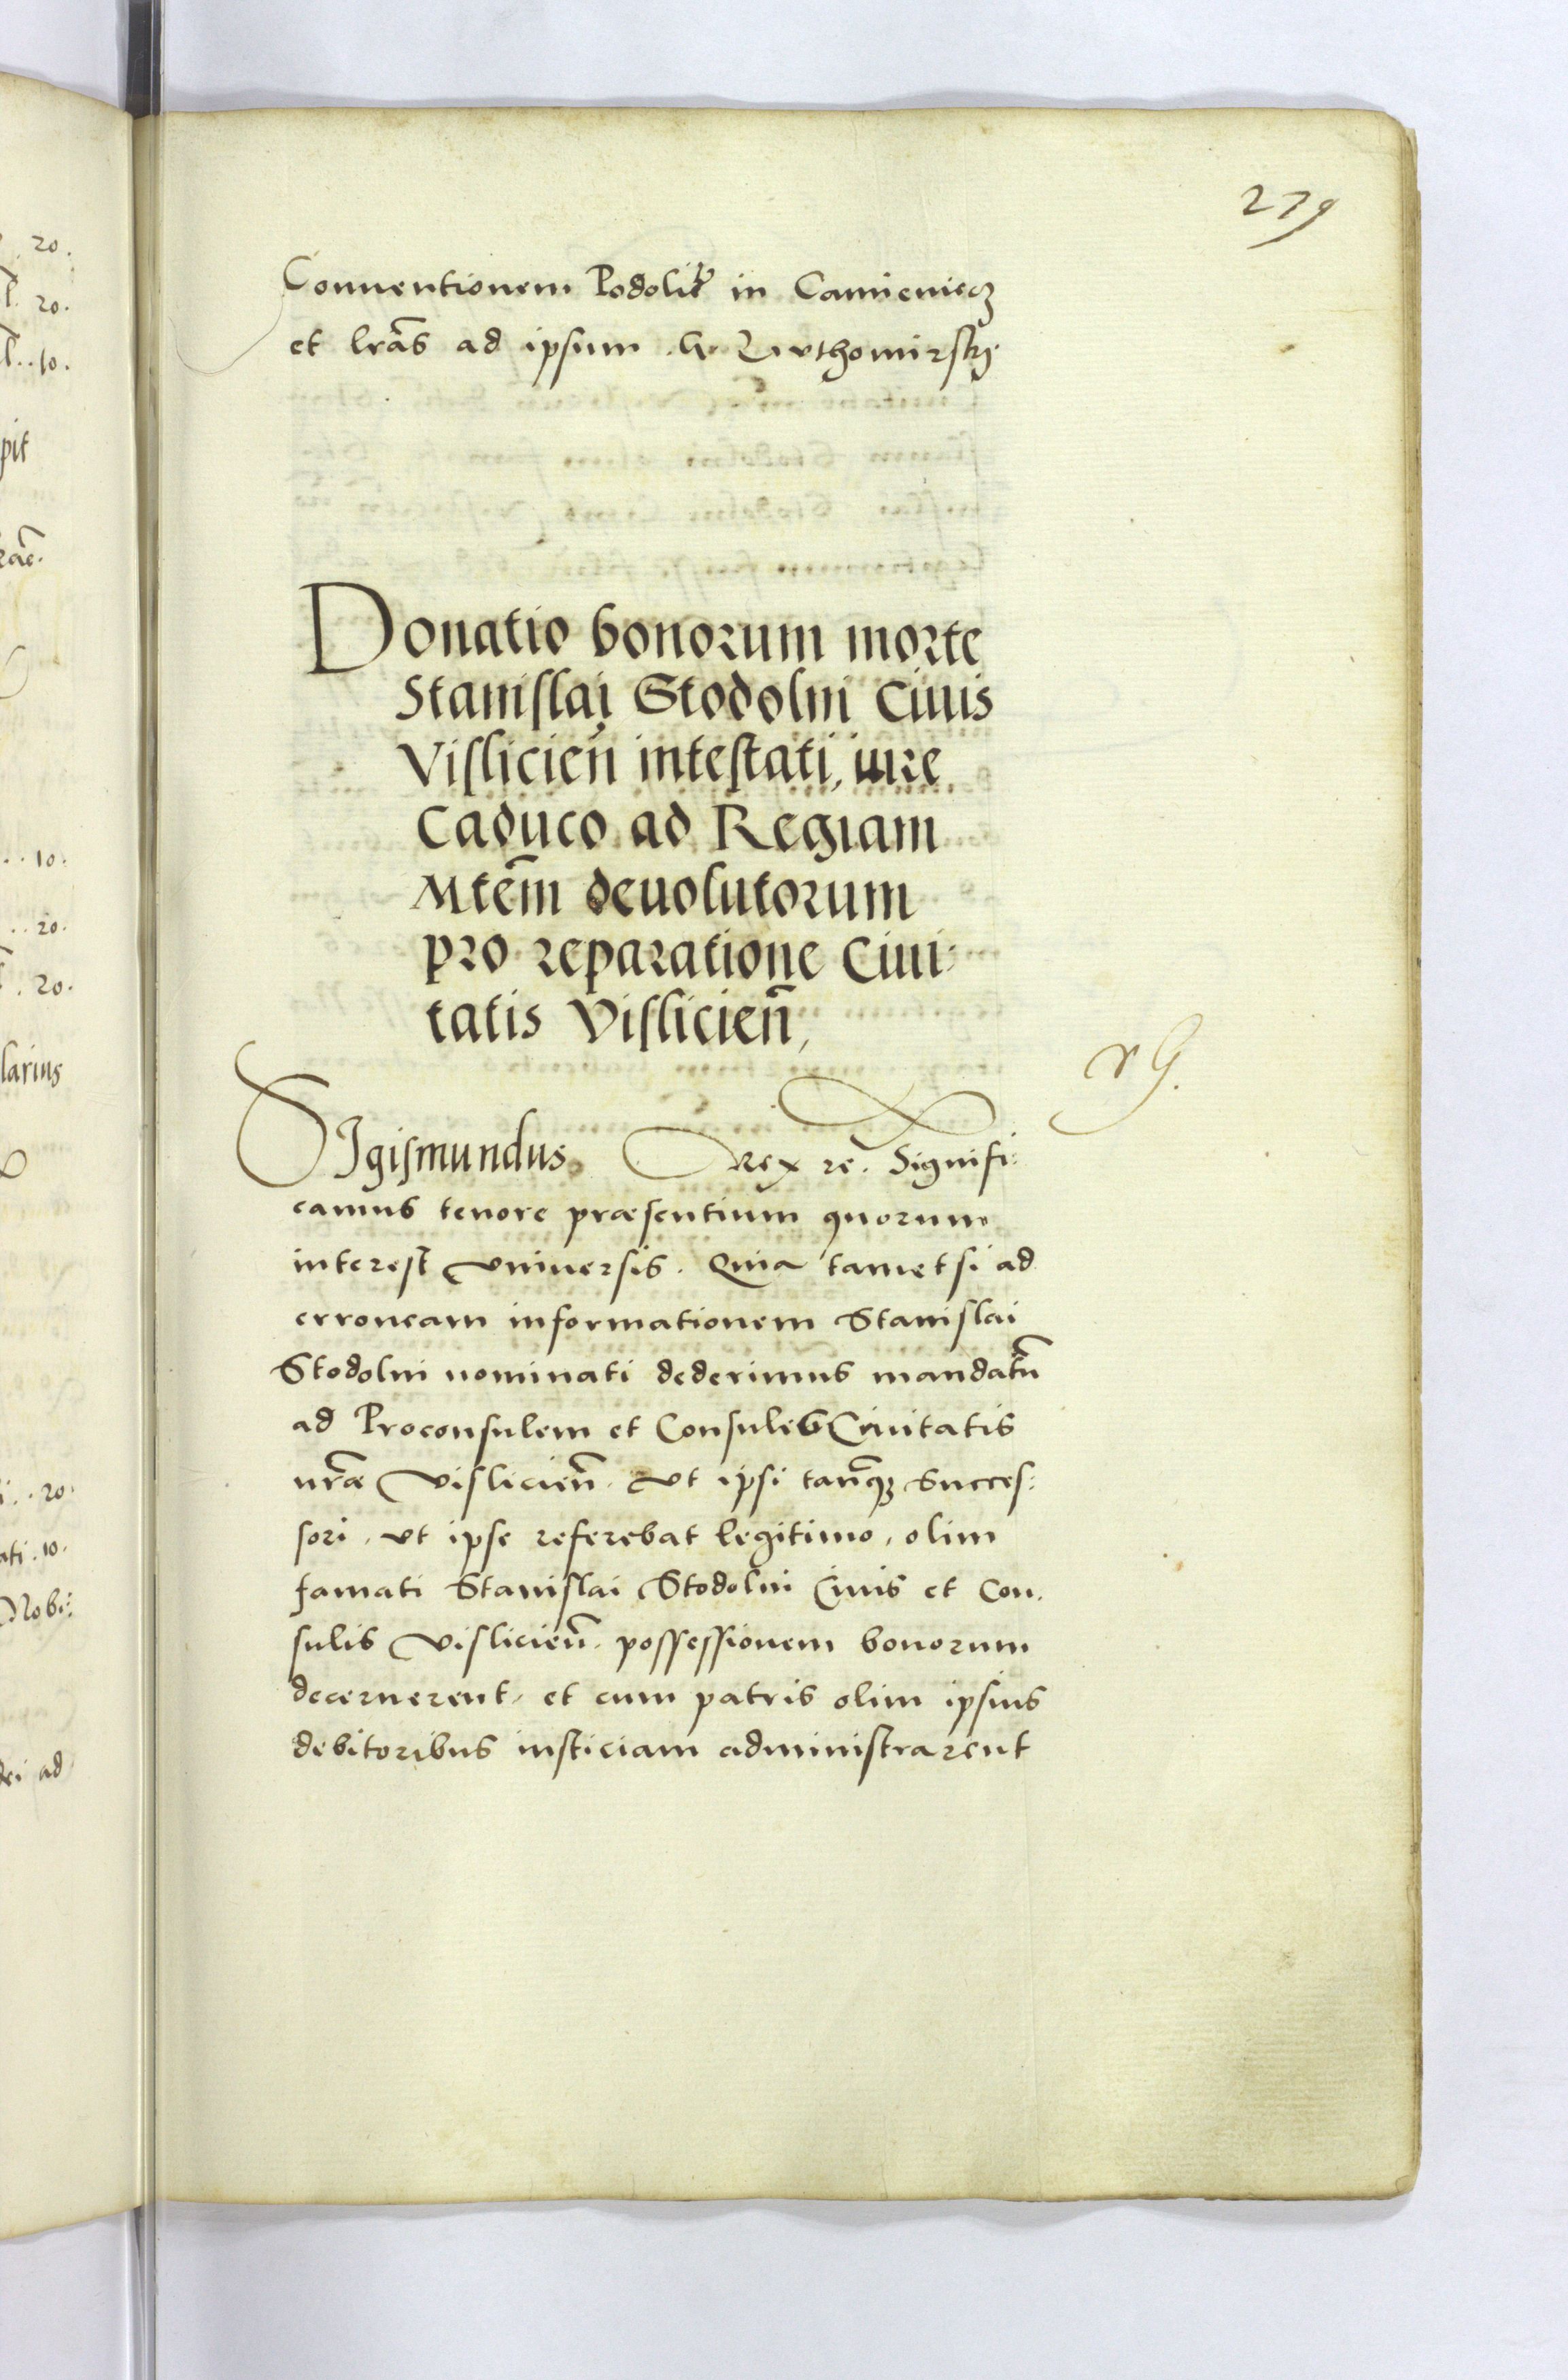 279
Conuentionem Podolie in Camieniecz
et lrãs ad ipsum G Luthomirskj
Donatio bonorum morte
Stanislai Stodolni Ciuis
Vislicieñ intestati, iure
Caduco ad Regiam
Mtem̃ deuolutorum
pro reparatione Ciui:
tatis Vislicieñ,
Sigismundus Rex rc̃. Signifi:
camus tenore præsentium quorum
interest vniuersis. Quia tametsi ad
erroneam informationem Stanislai
Stodolni nominati dederimus mandatũ
ad Proconsulem et Consules Ciuitatis
nr̃æ Visliciẽn. Vt ipsi tanq̃ꝫ Succes:
sori, vt ipse referebat legitimo, olim
famati Stanislai Stodolni Ciuis et Con.
sulis Visliciẽn. possessionem bonorum
decernerent, et cum patris olim ipsius
debitoribus iusticiam administrarent
20.
20.
10.
pit
10.
20.
20.
larius
20
10.
Nobi:
ad